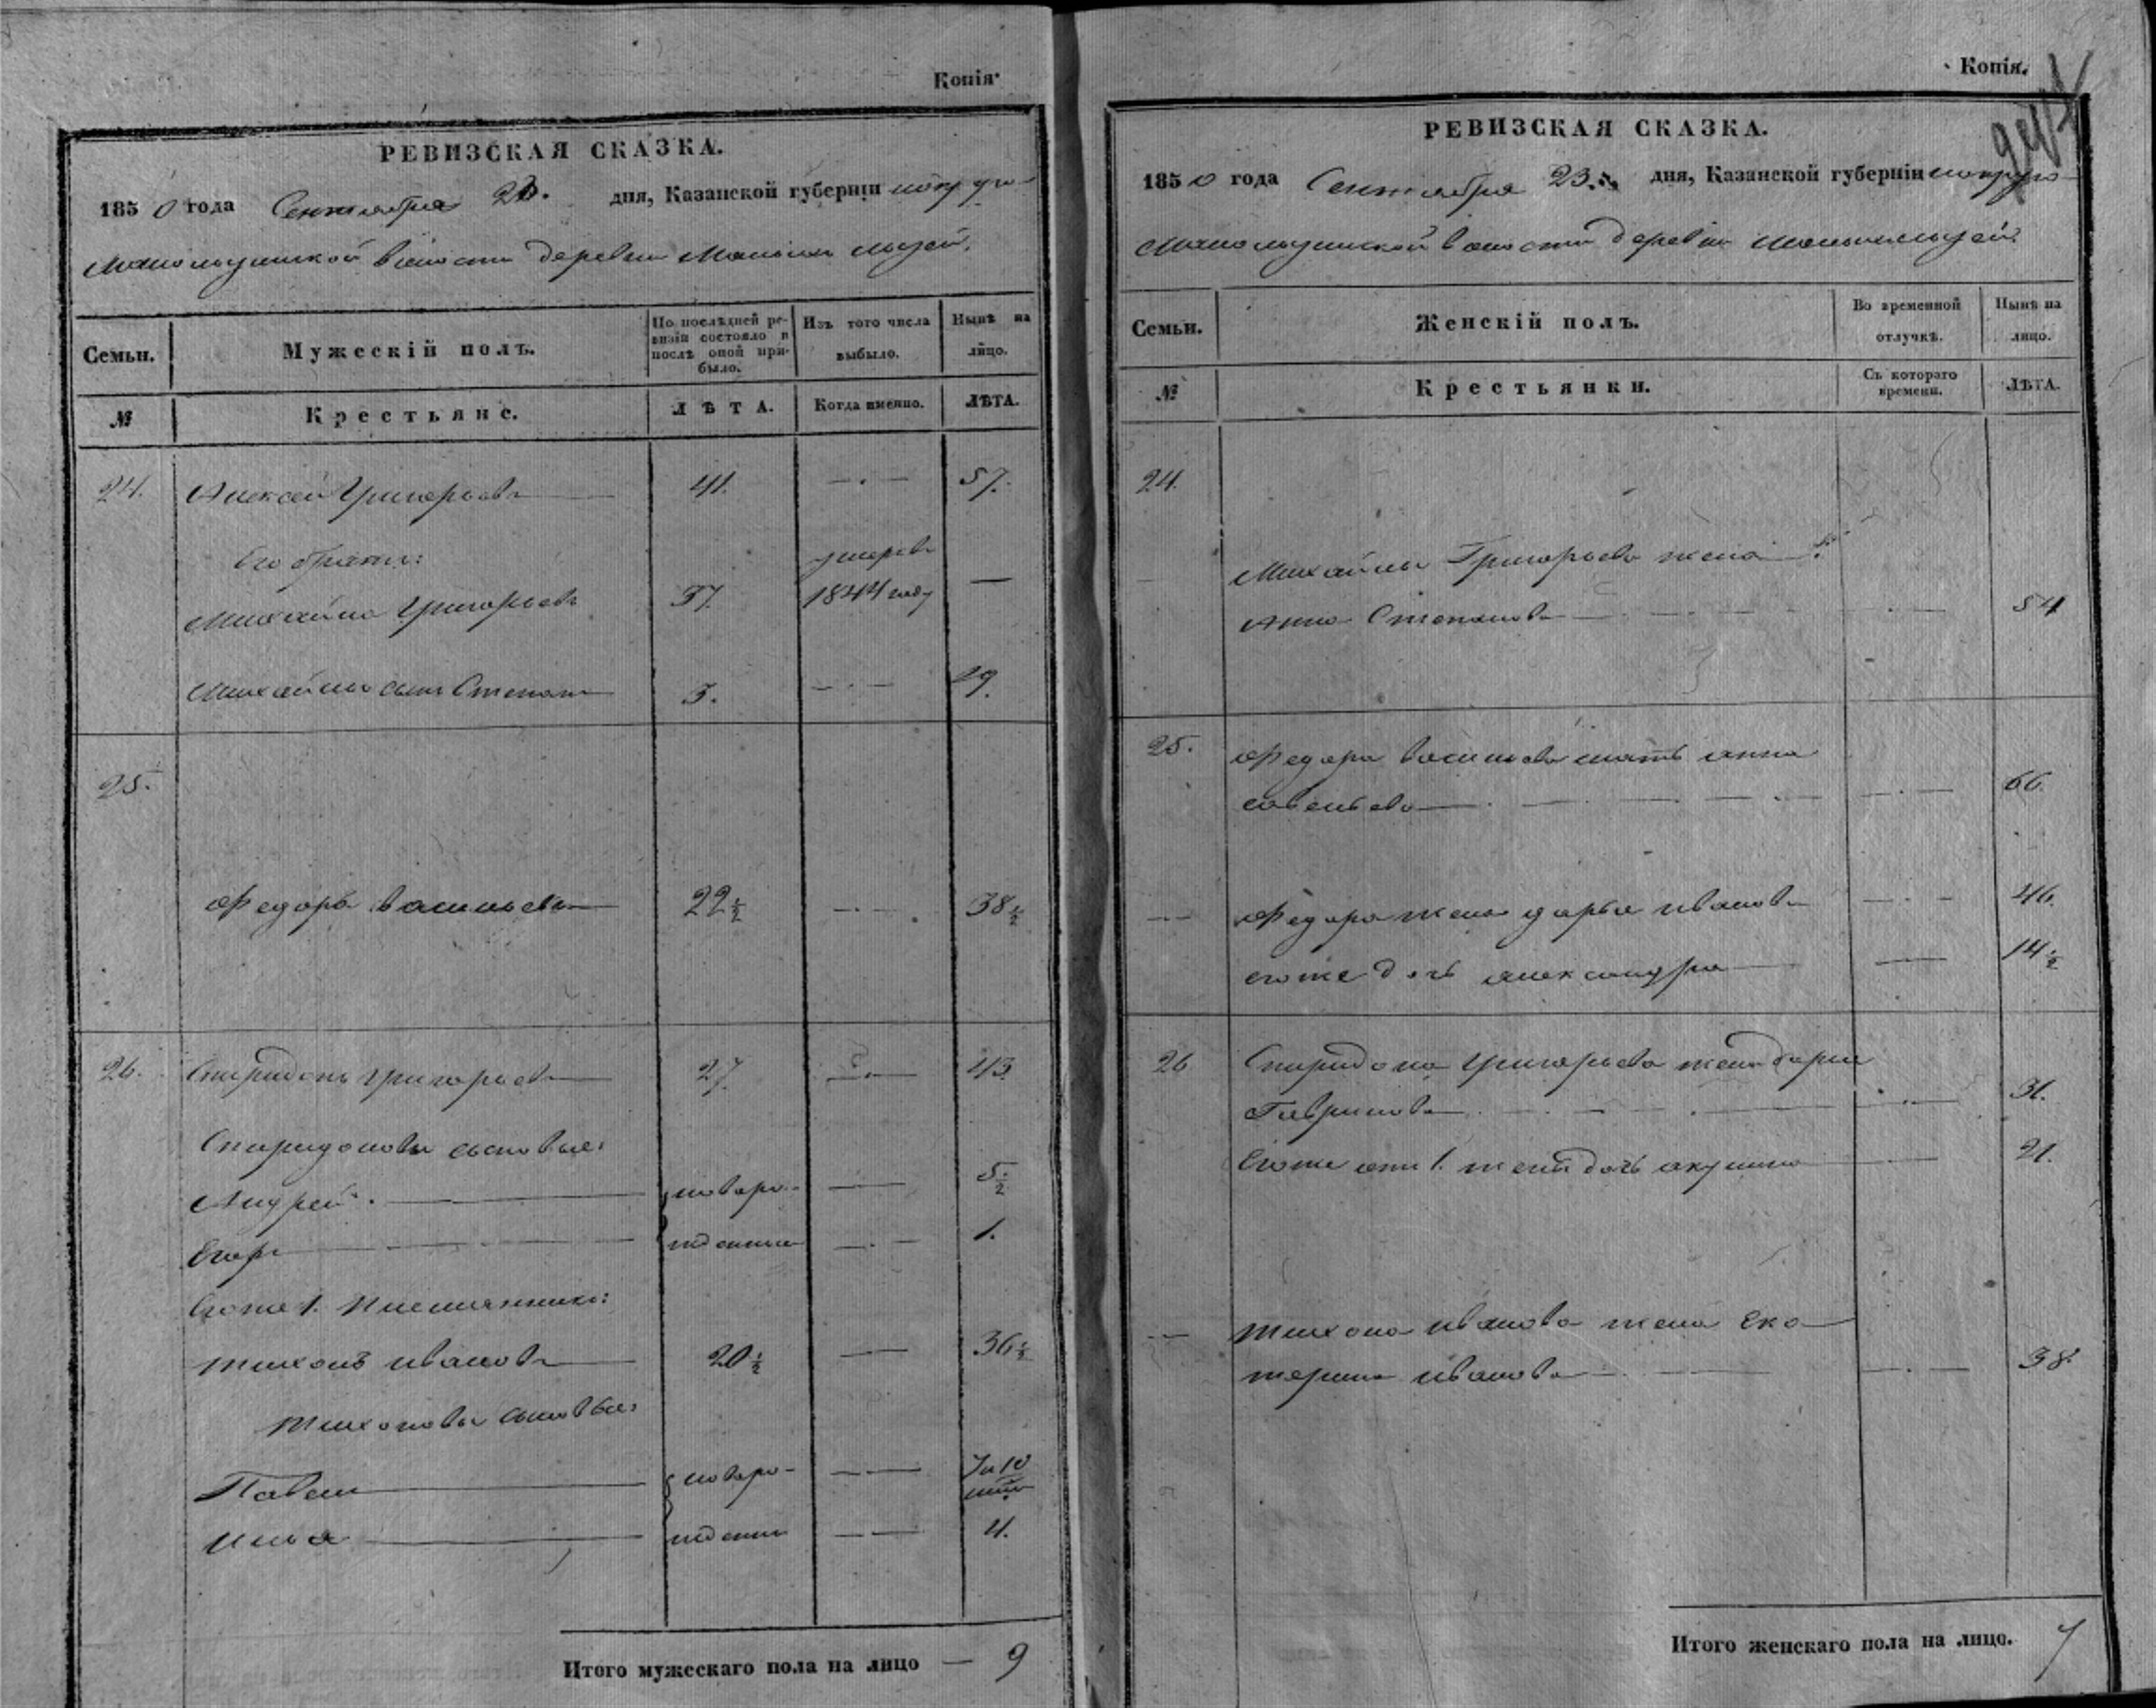 Копія
РЕВИЗСКАЯ СКАЗКА.
1850 года Сентября 23. дня, Казанской губерніи
волости деревни
Семьи.
Мужескій полъ.
По послѣдней ревизіи состояло и послѣ оной прибыло.
Изъ того числа выбыло.
Нынѣ на лицо.
№
Крестьяне.
ЛѢТА.
Когда именно.
ЛѢТА.
24. Алексей Григорьевъ 41. 57.
Его братъ: умеръ
Михайла Григорьевъ 37. 1844 году
Михайлы сынъ Степанъ 3. 19.
25.
Федоръ Васильевъ 22½ 38½
26. Спиридонъ Григорьевъ 27. 43.
Спиридоновы сыновья:
Андрей новоро- 5½
Егоръ жденные 1.
Егоже 1. племянникъ:
Тихонъ Ивановъ 20½ 36½
Тихоновы сыновья:
Павелъ новоро-
Илья ждены 4.
Итого мужескаго пола на лицо — 9
Копія.
РЕВИЗСКАЯ СКАЗКА.
1850 года Сентября 23. дня, Казанской губерніи
волости деревни
Семьи.
Женскій полъ.
Во временной отлучкѣ.
Нынѣ на лицо.
№
Крестьянки.
Съ котораго времени.
ЛѢТА.
24.
Михайлы Григорьева жена
Анна Степанова 54
25. Федора Васильева мать Анна
Савельева 66.
Федора жена Дарья Иванова 46.
егоже дочь Александра 14½
26 Спиридона Григорьева жена Дарья
Гаврилова 31.
Егоже отъ 1. жены дочь Акулина 21.
Тихона Иванова жена Ека-
терина Иванова 38.
Итого женскаго пола на лицо. 7